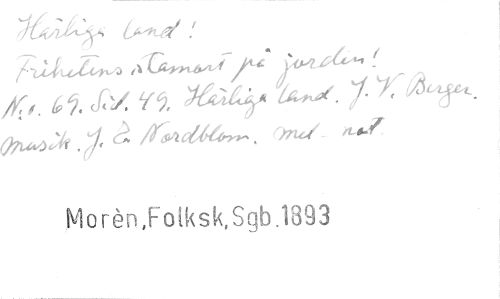 Härliga land!
Frihetens stamort på jorden!
N:o. 69. Sid. 49. Härliga land. J. V. Berger.
musik. J. E. Nordblom. med not
Morèn,Folksk,Sgb.1893